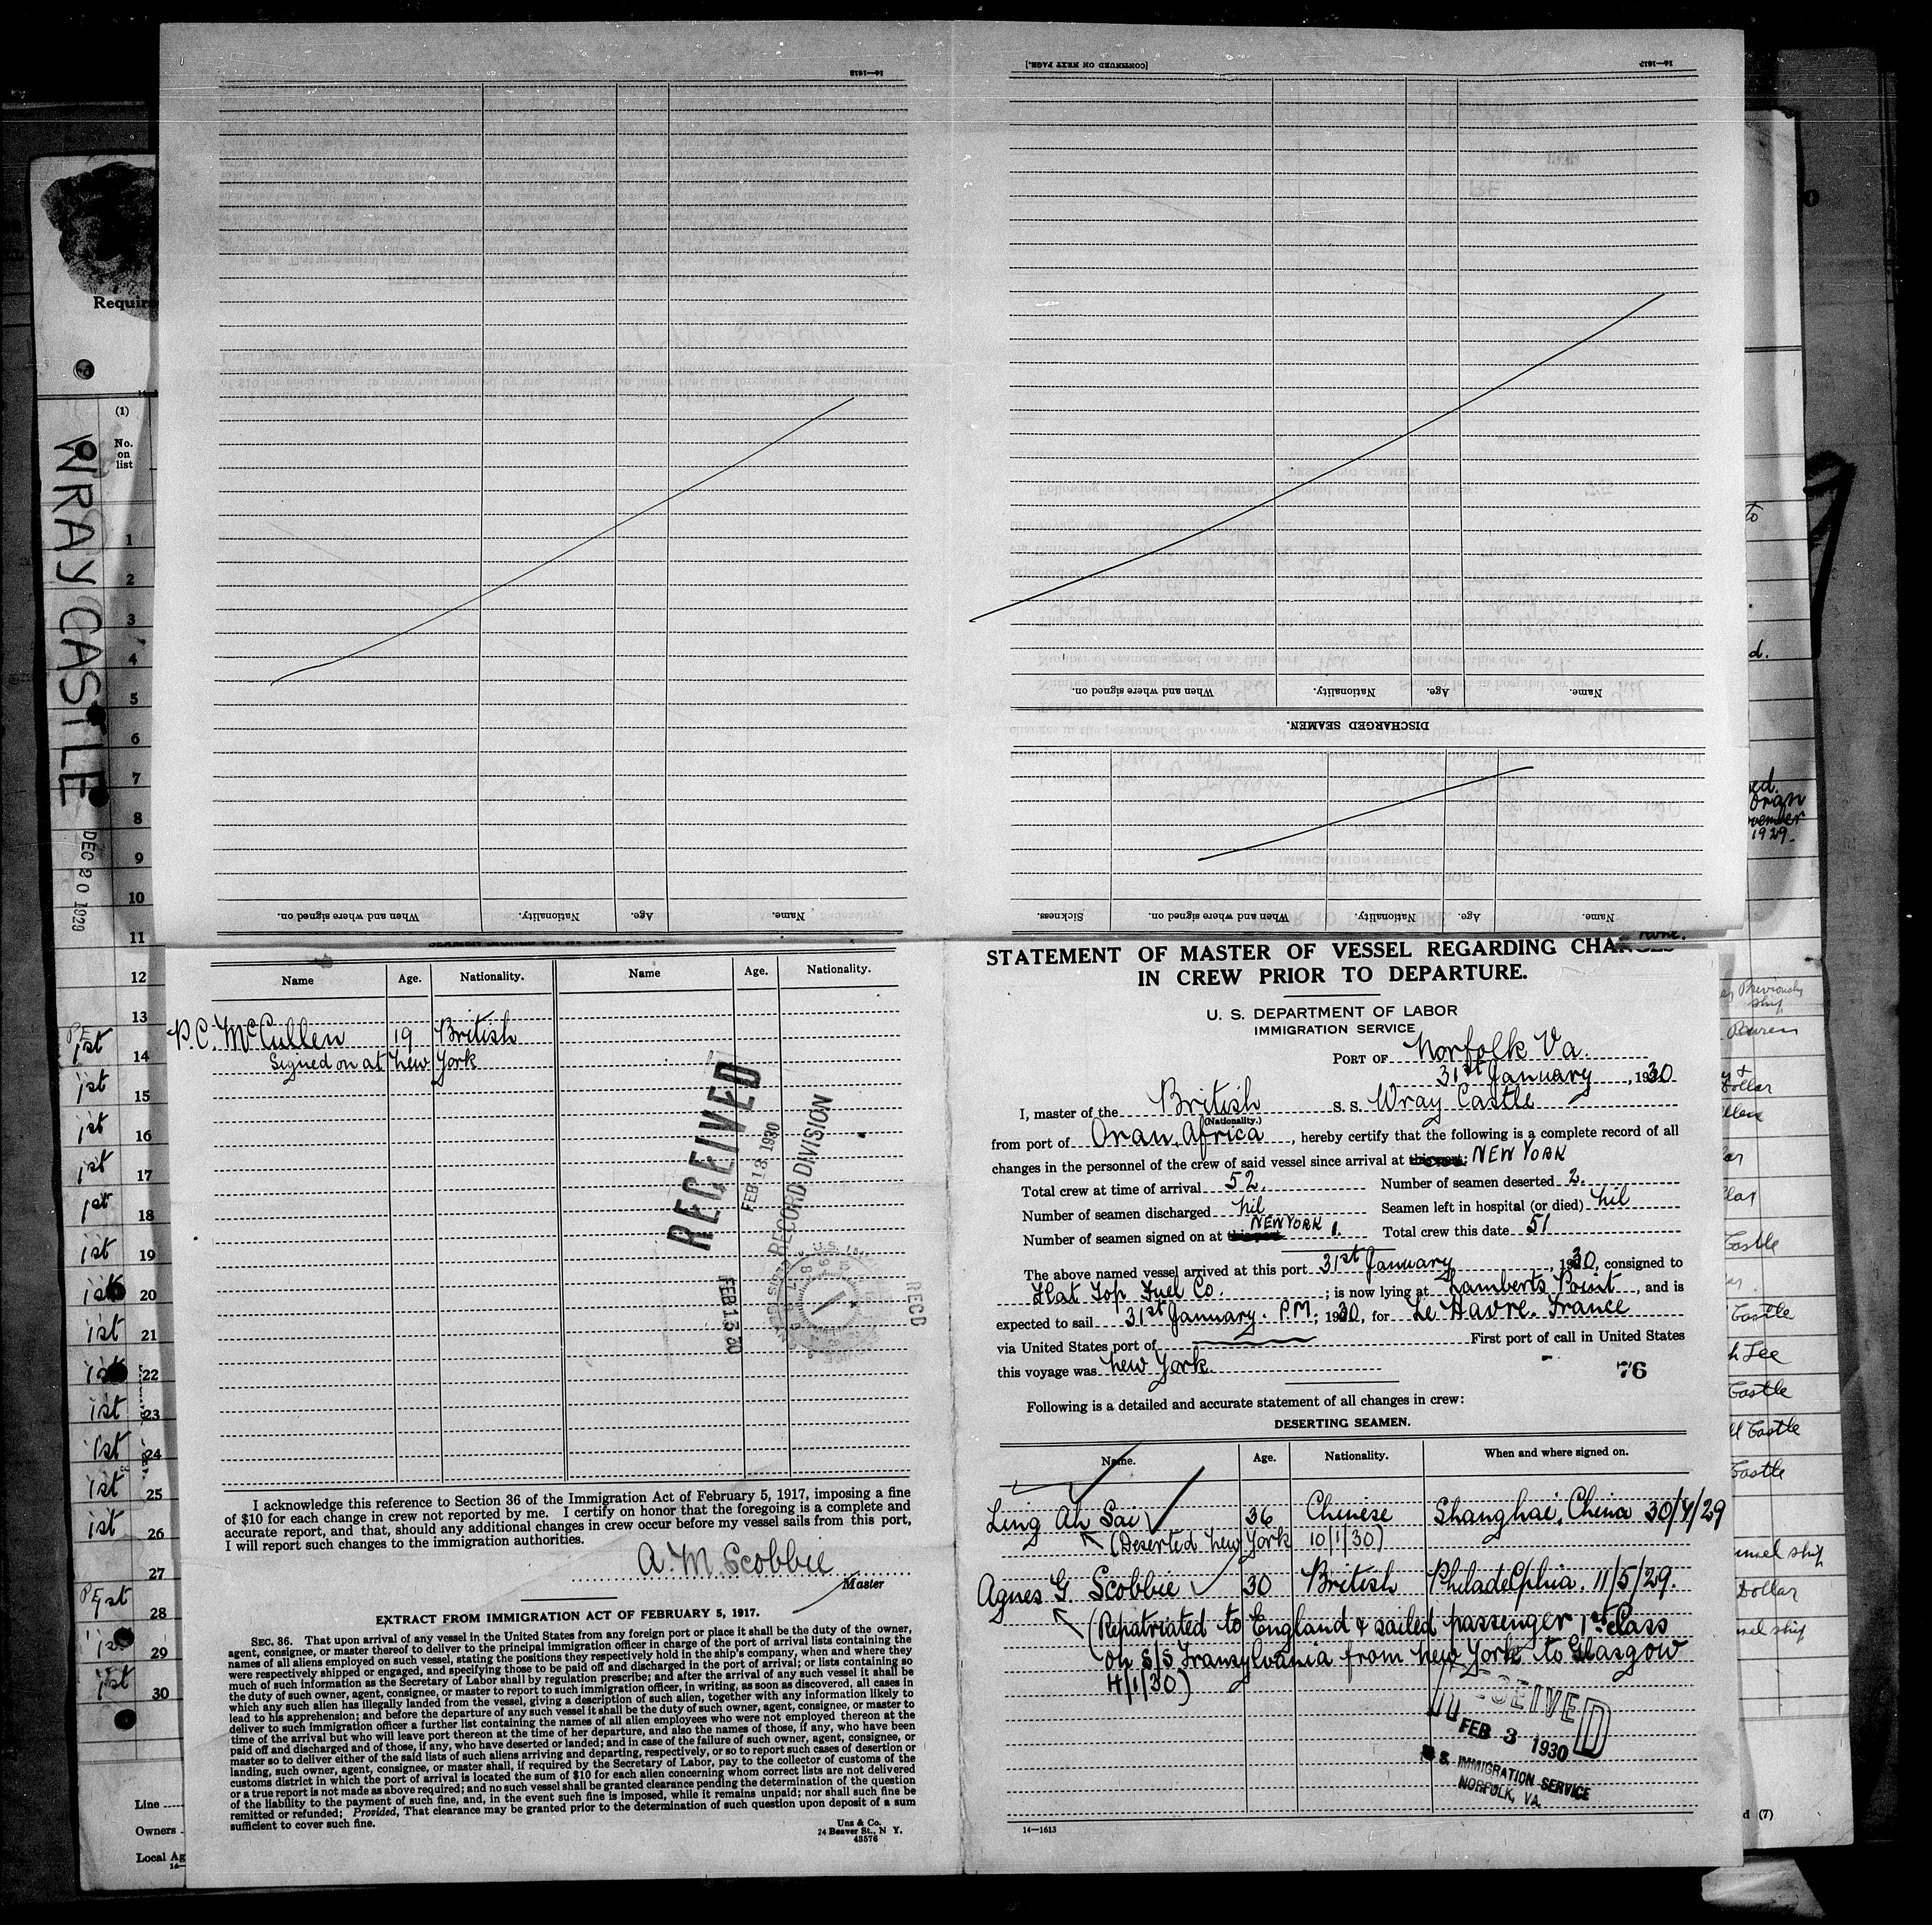 14—1613
[CONTINUED ON NEXT PAGE.]
14—1612
When and where signed on.
Nationality.
Age.
Name.
DISCHARGED SEAMEN.
Sickness.
When and where signed on.
Nationality.
Age.
Name.
When and where signed on.
Nationality.
Age.
Name.
(1)
No.
on
list
WRAY CASTLE
DEC 20 1929
1
2
3
4
5
6
7
8
9
10
11
12
13
1st 14
1st 15
1st 16
1st 17
1st 18
1st 19
1st 20
1st 21
1st 22
1st 23
1st 24
1st 25
1st 26
27
1st 28
1st 29
1st 30
Line
Owners
Name Age. Nationality. Name Age. Nationality.
P.C. McCullen 19 British
Signed on at New York
RECEIVED
FEB 13 1930
RECORD DIVISION
FEB 13 30
REC'D
I acknowledge this reference to Section 36 of the Immigration Act of February 5, 1917, imposing a fine
of $10 for each change in crew not reported by me. I certify on honor that the foregoing is a complete and
accurate report, and that, should any additional changes in crew occur before my vessel sails from this port,
I will report such changes to the immigration authorities.
A. M. Scobbie
Master
EXTRACT FROM IMMIGRATION ACT OF FEBRUARY 5, 1917.
SEC. 36. That upon arrival of any vessel in the United States from any foreign port or place it shall be the duty of the owner,
agent, consignee, or master thereof to deliver to the principal immigration officer in charge of the port of arrival lists containing the
names of all aliens employed on such vessel, stating the positions they respectively hold in the ship's company, when and where they
were respectively shipped or engaged, and specifying those to be paid off and discharged in the port of arrival; or lists containing so
much of such information as the Secretary of Labor shall by regulation prescribe; and after the arrival of any such vessel it shall be
the duty of such owner, agent, consignee, or master to report to such immigration officer, in writing, as soon as discovered, all cases in
which any such alien has illegally landed from the vessel, giving a description of such alien, together with any information likely to
lead to his apprehension; and before the departure of any such vessel it shall be the duty of such owner, agent, consignee, or master to
deliver to such immigration officer a further list containing the names of all alien employees who were not employed thereon at the
time of the arrival but who will leave port thereon at the time of her departure, and also the names of those, if any, who have been
paid off and discharged and of those, if any, who have deserted or landed; and in case of the failure of such owner, agent, consignee, or
master so to deliver either of the said lists of such aliens arriving and departing, respectively, or so to report such cases of desertion or
landing, such owner, agent, consignee, or master shall, if required by the Secretary of Labor, pay to the collector of customs of the
customs district in which the port of arrival is located the sum of $10 for each alien concerning whom correct lists are not delivered
or a true report is not made as above required; and no such vessel shall be granted clearance pending the determination of the question
of the liability to the payment of such fine, and, in the event such fine is imposed, while it remains unpaid; nor shall such fine be
remitted or refunded; Provided, That clearance may be granted prior to the determination of such question upon deposit of a sum
sufficient to cover such fine.
Uns & Co.
24 Beaver St., N. Y.
43576
STATEMENT OF MASTER OF VESSEL REGARDING
IN CREW PRIOR TO DEPARTURE.
U. S. DEPARTMENT OF LABOR
IMMIGRATION SERVICE
PORT OF Norfolk Va.
31st January, 1930
I, master of the British S. S. Wray Castle
(Nationality.)
from port of Oran, Africa, hereby certify that the following is a complete record of all
changes in the personnel of the crew of said vessel since arrival at this port: NEW YORK
Total crew at time of arrival 52. Number of seamen deserted 2.
Number of seamen discharged nil Seamen left in hospital (or died) nil
Number of seamen signed on at this port NEW YORK 1. Total crew this date 51
The above named vessel arrived at this port 31st January, 1930, consigned to
Flat Top Fuel Co.; is now lying at Lamberts Point, and is
expected to sail 31st January. P.M.; 1930, for Le Havre. France
via United States port of First port of call in United States
this voyage was New York.
76
Following is a detailed and accurate statement of all changes in crew:
DESERTING SEAMEN.
Name. Age. Nationality. When and where signed on.
Ling Ah Sai 36 Chinese Shanghai, China 30/4/29
(Deserted New York 10/1/30)
Agnes G. Scobbie 30 British Philadelphia. 11/5/29.
(Repatriated to England & sailed passenger 1st Class
on s/s Transylvania from New York to Glasgow
4/1/30)
RECEIVED
FEB 3 1930
U. S. IMMIGRATION SERVICE
NORFOLK, VA.
14—1613
1929.
Previously
ship
Dollar
Castle
Castle
Lee
Castle
Castle
Castle
Dollar
(7)